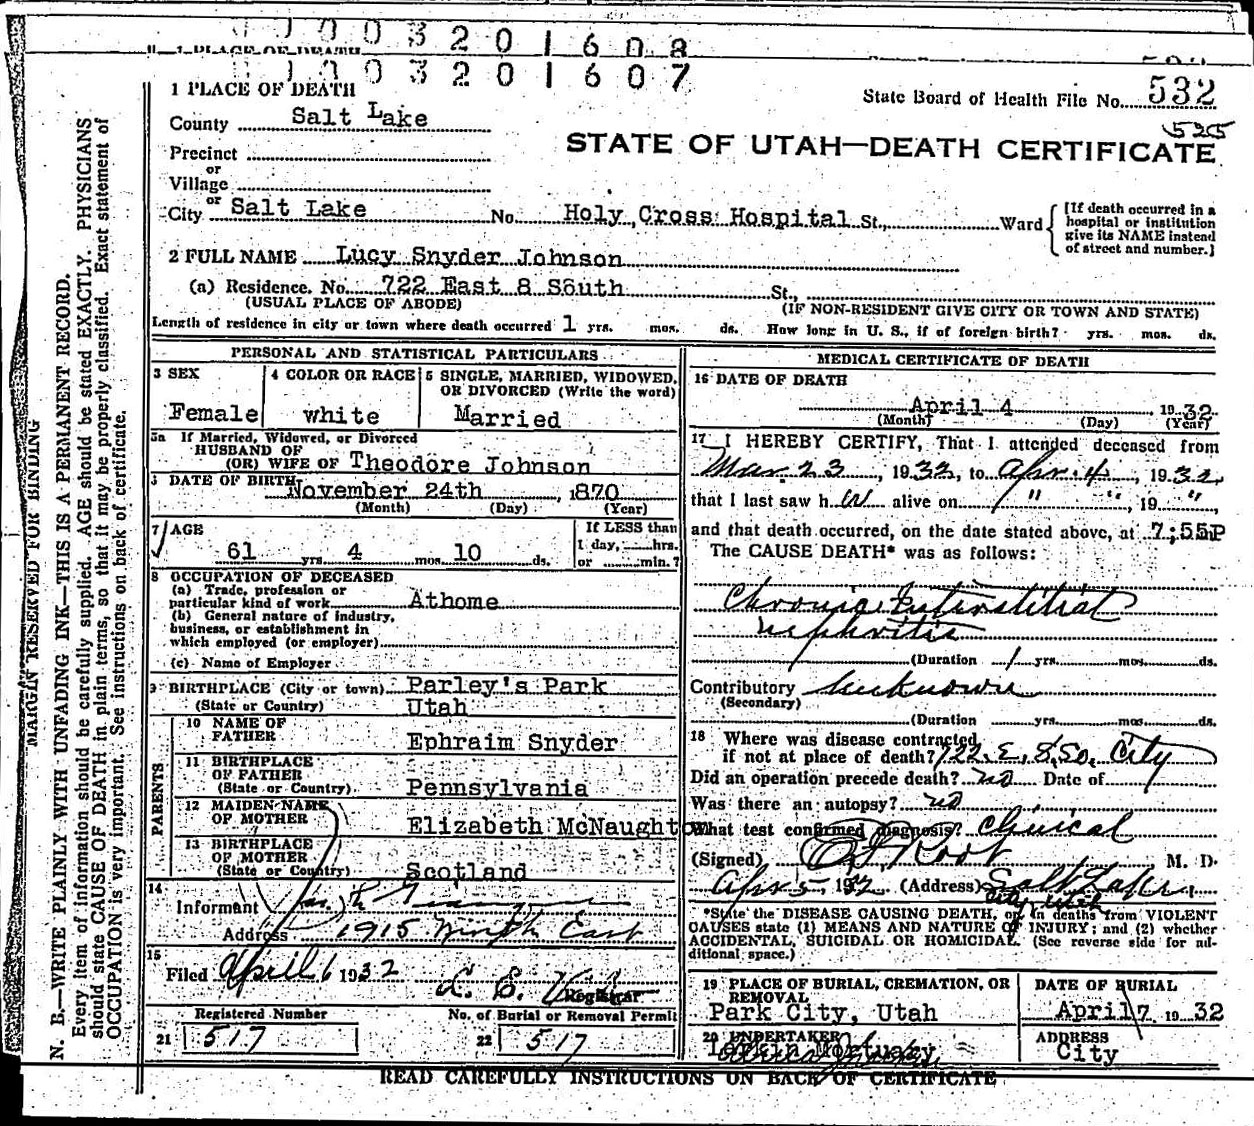 1 0 0 3 2 0 1 6 0 8
1 PLACE OF DEATH
1 0 0 3 2 0 1 6 0 7
1 PLACE OF DEATH
State Board of Health File No. 532
525
County Salt Lake
STATE OF UTAH—DEATH CERTIFICATE
Precinct
or
Village
or
City Salt Lake No. Holy Cross Hospital St., Ward
[If death occurred in a
hospital or institution
give its NAME instead
of street and number.]
2 FULL NAME Lucy Snyder Johnson
(a) Residence. No. 722 East 8 South St.,
(USUAL PLACE OF ABODE) (IF NON-RESIDENT GIVE CITY OR TOWN AND STATE)
Length of residence in city or town where death occurred 1 yrs. mos. ds. How long in U. S., if of foreign birth? yrs. mos. ds.
PERSONAL AND STATISTICAL PARTICULARS
3 SEX
Female
4 COLOR OR RACE
white
5 SINGLE, MARRIED, WIDOWED,
OR DIVORCED (Write the word)
Married
5a If Married, Widowed, or Divorced
HUSBAND OF
(OR) WIFE OF Theodore Johnson
6 DATE OF BIRTH November 24th, 1870
(Month) (Day) (Year)
7 AGE
61 yrs. 4 mos. 10 ds.
If LESS than
1 day, hrs.
or min.?
8 OCCUPATION OF DECEASED
(a) Trade, profession or
particular kind of work Athome
(b) General nature of industry,
business, or establishment in
which employed (or employer)
(c) Name of Employer
9 BIRTHPLACE (City or town) Parley's Park
(State or Country) Utah
PARENTS
10 NAME OF
FATHER Ephraim Snyder
11 BIRTHPLACE
OF FATHER
(State or Country) Pennsylvania
12 MAIDEN NAME
OF MOTHER Elizabeth McNaughton
13 BIRTHPLACE
OF MOTHER
(State or Country) Scotland
14
Informant
Address 1915 Ninth East
15
Filed April 6 1932
Registrar
Registered Number
21 517
No. of Burial or Removal Permit
22 517
MEDICAL CERTIFICATE OF DEATH
16 DATE OF DEATH
April 4 1932
(Month) (Day) (Year)
17 I HEREBY CERTIFY, That I attended deceased from
Mar. 23, 1932, to Apr. 4, 1932,
that I last saw h er alive on " ", 19 "
and that death occurred, on the date stated above, at 7:55P m
The CAUSE DEATH* was as follows:
Chronic Interstitial
nephritis
(Duration 1 yrs. mos. ds.
Contributory unknown
(Secondary)
(Duration yrs. mos. ds.
18 Where was disease contracted
if not at place of death? 722 E. 8 So. City
Did an operation precede death? no Date of
Was there an autopsy? no
What test confirmed diagnosis? Clinical
(Signed) Root M. D.
Apr 5, 1932 (Address) Salt Lake
City, Utah
*State the DISEASE CAUSING DEATH, or in deaths from VIOLENT
CAUSES state (1) MEANS AND NATURE OF INJURY; and (2) whether
ACCIDENTAL, SUICIDAL OR HOMICIDAL. (See reverse side for ad-
ditional space.)
19 PLACE OF BURIAL, CREMATION, OR
REMOVAL
Park City, Utah
DATE OF BURIAL
April 7 1932
20 UNDERTAKER
Larkin Mortuary
ADDRESS
City
READ CAREFULLY INSTRUCTIONS ON BACK OF CERTIFICATE
MARGIN RESERVED FOR BINDING
N. B.—WRITE PLAINLY WITH UNFADING INK—THIS IS A PERMANENT RECORD.
Every item of information should be carefully supplied. AGE should be stated EXACTLY. PHYSICIANS
should state CAUSE OF DEATH in plain terms, so that it may be properly classified. Exact statement of
OCCUPATION is very important. See instructions on back of certificate.